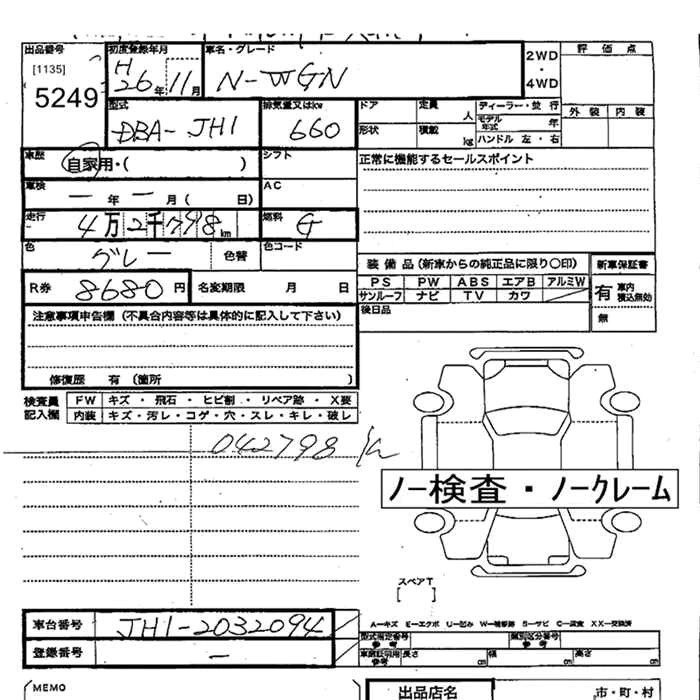 出品番号 初度登録年月 車名・グレード 2WD・4WD 評価点
[1135] H26年11月 N-WGN
5249 外装 内装
型式 排気量又はkw ドア 定員 人 ディーラー・並行
DBA-JH1 660 モデル年式 年
形状 積載 kg ハンドル 左・右
車歴 自家用・( ) シフト 正常に機能するセールスポイント
車検 ー年ー月( 日) AC
走行 4万2千798km 燃料 G
色 グレー 色替 色コード
装備品(新車からの純正品に限り〇印) 新車保証書
R券 8680円 名変期限 月 日 PS PW ABS エアB アルミW 有 車内 積込無効
サンルーフ ナビ TV カワ
注意事項申告欄(不具合内容等は具体的に記入して下さい) 後日品 無
修復歴 有(箇所 )
検査員記入欄 FW キズ・飛石・ヒビ割・リペア跡・X要
内装 キズ・汚レ・コゲ・穴・スレ・キレ・破レ
042798 k
ノー検査・ノークレーム
スペアT
[ ]
車台番号 JH1-2032094 A―キズ E―エクボ U―凹み W―補修跡 S―サビ C―腐食 XX―交換済
型式指定番号 参考 類別区分番号 参考
登録番号 ー 車庫証明用 参考 長さ cm 幅 cm 高さ cm
MEMO 出品店名 市・町・村